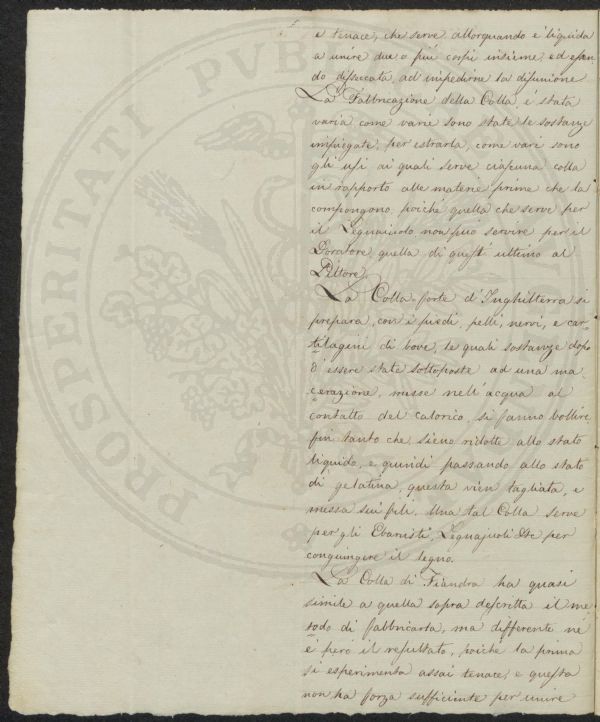 e tenace, che serve allorquando è liquida
a unire due o più corpi insieme, ed essen
do dissucata, ad impedirne la disunione
La Fabbricazione della Colla, è stata
varia come varie sono state le sostanze
impiegate, per estrarla, come vari sono
gli usi ai quali serve ciascuna colla
in rapporto alle materie prime che la
compongono, poichè quella che serve per
il Legnaiuolo non può servire per il
Doratore, quella di quest' ultimo al
Pittore.
La Colla forte d'Inghilterra si
prepara, con i piedi, pelli, nervi, e car-
tilagini di bove, le quali sostanze dopo
d'essere state sottoposte ad una ma-
cerazione, messe nell'acqua al
contatto del calorico, si fanno bollire
fin tanto che sieno ridotte allo stato
liquido, e quindi passando allo stato
di gelatina, questa vien tagliata, e
messa sui fili. Una tal Colla serve
per gli Ebanisti, Legnajuoli &c per
congiungere il legno.
La Colla di Fiandra ha quasi
simile a quella sopra descritta il me-
todo di fabbricarla, ma differente nè
è però il resultato, poichè la prima
si esperimenta assai tenace, e questa
non ha forza sufficiente per unire
PROSPERITATI PVB